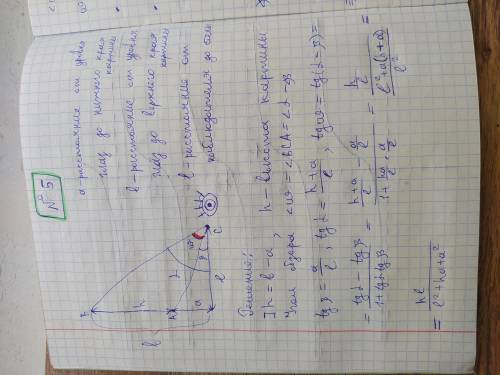 № 5
a-расстояние от уровня
глаз до нижнего края
картины
b-расстояние от уровня
глаз до верхнего края
картины
l-расстояние от
наблюдателя до стены
B
h
A
a
b
α
φ
l
C
Решение:
] h = b - a ; h - высота картины
Угол обзора <w = <BCA = <α - φ
tg φ = a/l ; tg α = (h+a)/l ; tg w = tg(α - φ) =
= (tg α - tg φ)/(1 + tg α tg φ) = ((h+a)/l - a/l)/(1 + (h+a)/l · a/l) = (h/l)/((l² + a(h+a))/l²) =
= hl/(l² + ha + a²)